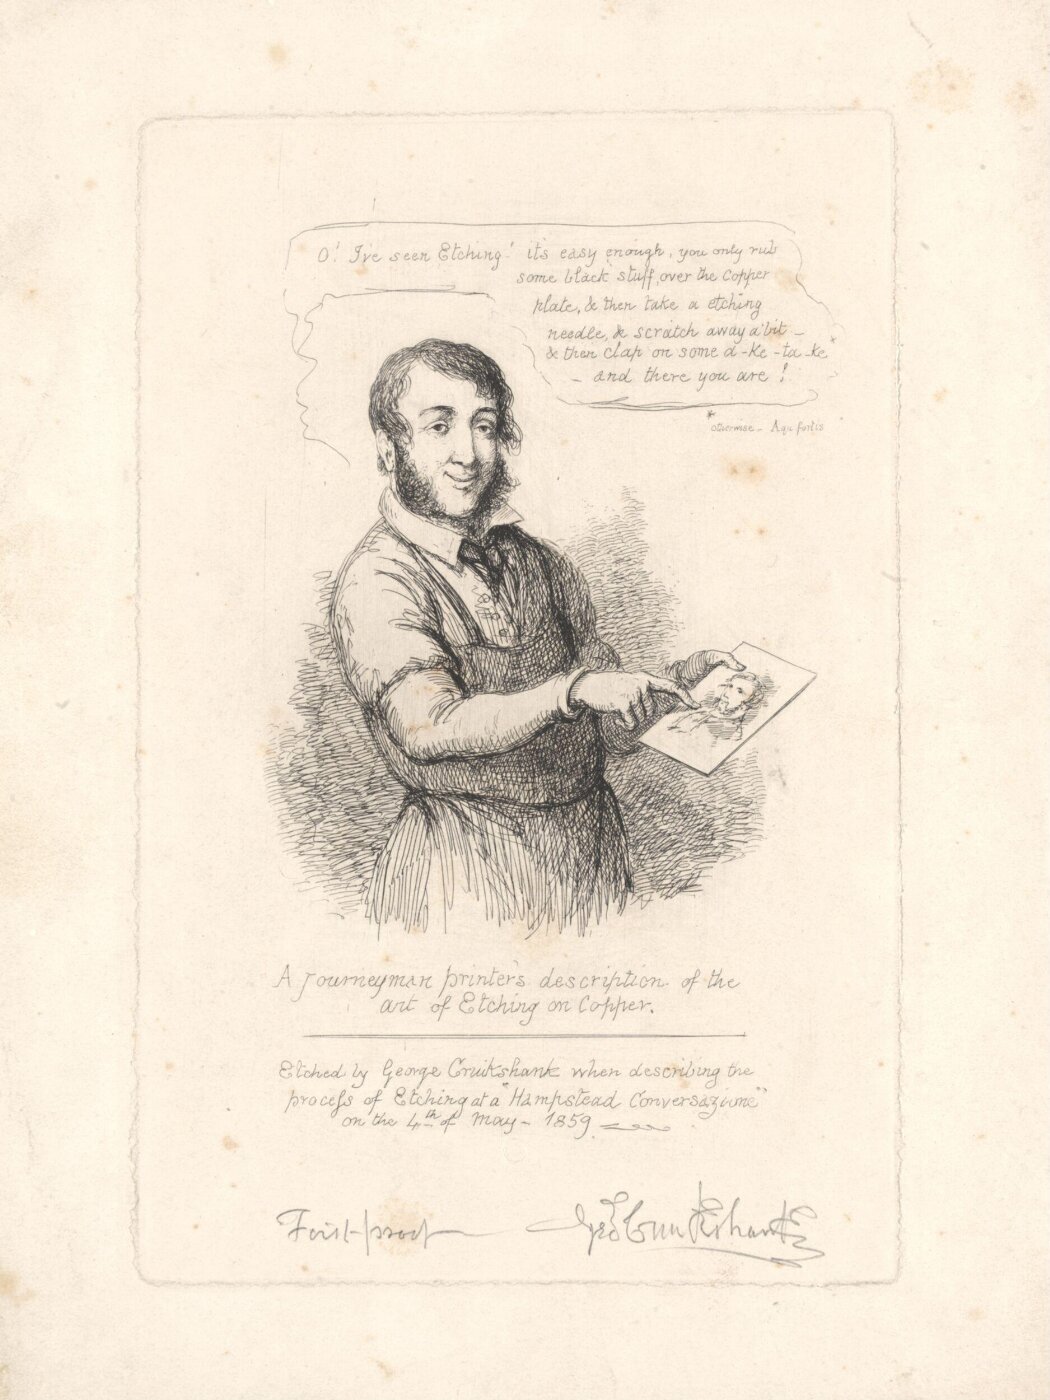 O! I've seen Etching! it's easy enough, you only rub
some black stuff, over the Copper
plate, & then take a etching
needle, & scratch away a bit –
& then clap on some a-ke-ta-ke*
– and there you are !
* otherwise – Aqu fortis
A Journeyman printer's description of the
art of Etching on Copper.
Etched by George Cruikshank when describing the
process of Etching at a "Hampstead Conversazione"
on the 4th of May – 1859.
First-proof
Geo Cruikshank